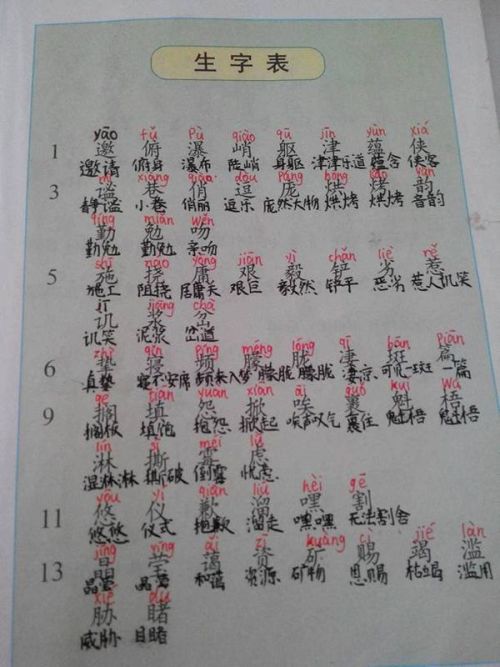 生字表
yāo fǔ pù qiào qū jīn yùn xiá
1 邀 俯 瀑 峭 躯 津 蕴 侠
邀请 俯身 瀑布 陡峭 身躯 津津乐道 蕴含 侠客
mì xiàng qiào dòu páng hōng kǎo yùn
3 谧 巷 俏 逗 庞 烘 烤 韵
静谧 小巷 俏丽 逗乐 庞然大物 烘烤 烘烤 音韵
qín miǎn wěn
勤 勉 吻
勤勉 勤勉 亲吻
shī náo yōng jiān yì chǎn liè rě
5 施 挠 庸 艰 毅 铲 劣 惹
施工 阻挠 居庸关 艰巨 毅然 铲平 恶劣 惹人讥笑
jī jiāng chà
讥 浆 岔
讥笑 泥浆 岔道
zhí qǐn pín méng lóng qī bān piān
6 蛰 寝 频 朦 胧 凄 斑 篇
寝不安席 频来入梦 朦胧 朦胧 凄凉 可见一斑 一篇
gē tián yuàn xiān āi guǒ kuí wú
9 搁 填 怨 掀 唉 裹 魁 梧
搁板 填饱 抱怨 掀起 唉声叹气 裹住 魁梧 魁梧
lín sī méi lǜ
淋 撕 霉 虑
湿淋淋 撕破 倒霉 忧虑
yōu yí qiàn liū hēi gē
11 悠 仪 歉 溜 嘿 割
悠悠 仪式 抱歉 溜走 嘿嘿 无法割舍
jīng yíng ǎi zī kuàng cì jié làn
13 晶 莹 蔼 资 矿 赐 竭 滥
晶莹 晶莹 和蔼 资源 矿物 恩赐 枯竭 滥用
xié dǔ
胁 睹
威胁 目睹